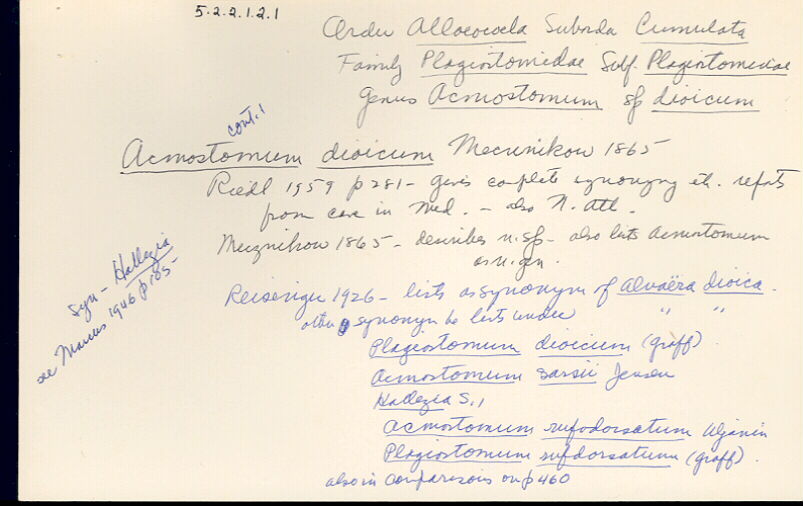 5.2.2.1.2.1
Order Alloeocoela Suborder Cumulata
Family Plagiostomidae Subf. Plagiostominae
Genus Acmostomum sp dioicum
cont.1
Acmostomum dioicum Mecznikow 1865
Riedl 1959 p 281 - gives complete synonymy etc. reports
from cave in Med. - also N. Atl.
Mecznikow 1865 - describes n.sp - also lists Acmostomum
as n.gen.
Reisinger 1926 - lists as synonym of Alvaëra dioica.
other synonyms he lists under " "
Plagiostomum dioicum (Graff)
Acmostomum Sarsii Jensen
Hallezia S.1
Acmostomum rufodorsatum Uljanin
Plagiostomum rufdorsatum (Graff).
also in comparisons on p 460
Syn - Hallezia
see Marcus 1946 p 185-